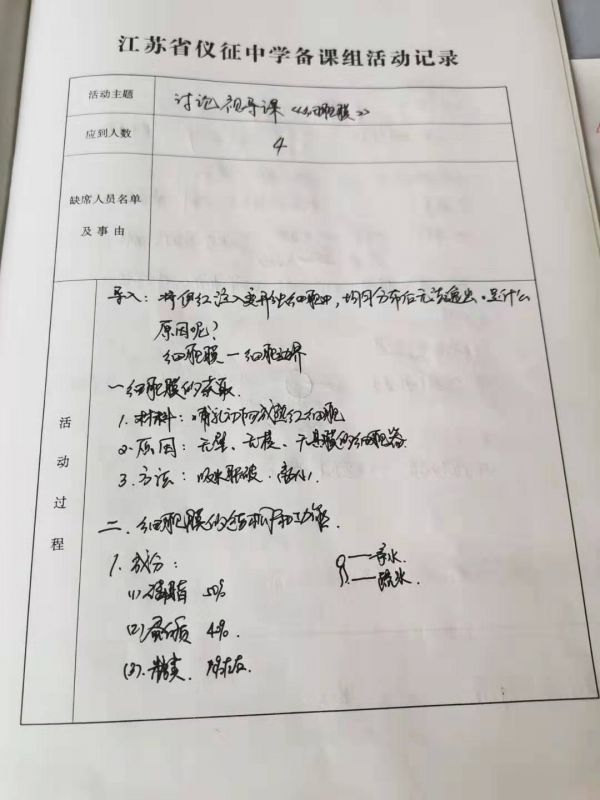 江苏省仪征中学备课组活动记录
活动主题
讨论视导课《细胞膜》
应到人数
4
缺席人员名单
及事由
活动过程
导入：将伯红注入变形虫细胞中，均匀分布后无法逸出。是什么
原因呢？
细胞膜—细胞边界
一 细胞膜的获取.
1. 材料：哺乳动物成熟红细胞
2. 原因：无壁、无核、无具膜的细胞器
3. 方法：吸水胀破、离心.
二、细胞膜的结构和功能.
1. 成分：
亲水
疏水.
(1) 磷脂 50%
(2) 蛋白质 40%
(3). 糖类